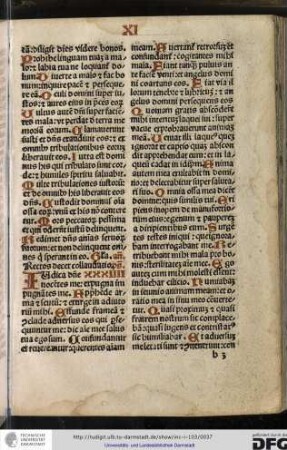 XI
tā? diligit dies videre bonos.
Prohibe linguam tuā a ma-
lo: ⁊ labia tua ne loquant̄ do-
lum. Diuerte a malo ⁊ fac bo-
num: inquire pacē ⁊ perseque-
re eā. Oculi domini super iu-
stos: ⁊ aures eius in p̄ces eoꝝ
Vultus autē dn̄i super faciē-
tes mala: vt perdat d̄ terra me
moriā eorum. Clamauerunt
iusti ⁊ dn̄s exaudiuit eos: ⁊ ex
omnib tribulationibus eorū
liberauit eos. Iuxta est domi
nus his qui tribulato sunt cor
de: ⁊ humiles spiritu saluabit.
Multe tribulationes iustoꝝ:
et de omnib his liberabit eos
dn̄s. Custodit dominus oīa
ossa eoꝝ: vnū ex his nō conte-
ret̄. Mors peccatoꝝ pessima
et qui oderūt iustū delinquent.
Redimet dn̄s aīas seruoꝝ
suorum: et non delinquent om-
nes q̇ sperant in eo. Gl̄a. an̄.
Rectos decet collaudatio. p̄s.
Iudica dn̄e XXXIIII
nocētes me: expugna im
pugnātes me. Apprehēde ar-
ma ⁊ scutū: ⁊ exurge in adiuto
riū mihi. Effunde frameā ⁊
conclude aduersus eos qui per-
sequunt̄ me: dic aīe mee salus
tua ego sum. Confundantur
et reuereantur querentes aīam
meam. Auertant̄ retrorsuꝫ et
confundant̄: cogitantes mihi
mala. Fiant tanq̄ʒ puluis an
te faciē venti: et angelus domi
ni coartans eos. Fiat via il
lorum tenebre ⁊ lubricū: ⁊ an
gelus domini persequens eos
Quoniam gratis absconderūt
mihi interitum laquei sui: super
vacue exprobrauerunt animaꝫ
meā. Veniat illi laque ̄ quez
ignorat et captio quā abscon
dit apprehendat eum: et in la
queū cadat in idipm̄. Anima
autem mea exultabit in domi-
no: ⁊ delectabitur super saluta-
ri suo. Omnia ossa mea dicēt
domine: quis similis tui. Eri-
piens inopem de manu fortio-
rum eius: egenum ⁊ pauperē
a diripientibus eum. Surgē-
tes testes iniqui: que ignora-
bam interrogabant me. Re-
tribuebant mihi mala pro bo-
nis: sterilitatē aīe mee. Ego
autē cum mihi molesti essent:
induebar cilicio. Humiliabā
in ieiunio animā meā: et ora-
tio mea in sinu meo conuerte-
tur. Quasi proximū: ⁊ quasi
fratrem nostrum sic complace-
bā: quasi lugens et contristat ̄
sic humiliabar. Et aduersuꝫ
me letati sunt ⁊ cōuenerunt: con
b 3
TECHNISCHE
UNIVERSITÄT
DARMSTADT
http://tudigit.ulb.tu-darmstadt.de/show/inc-i-103/0037
Universitäts- und Landesbibliothek Darmstadt
DFG